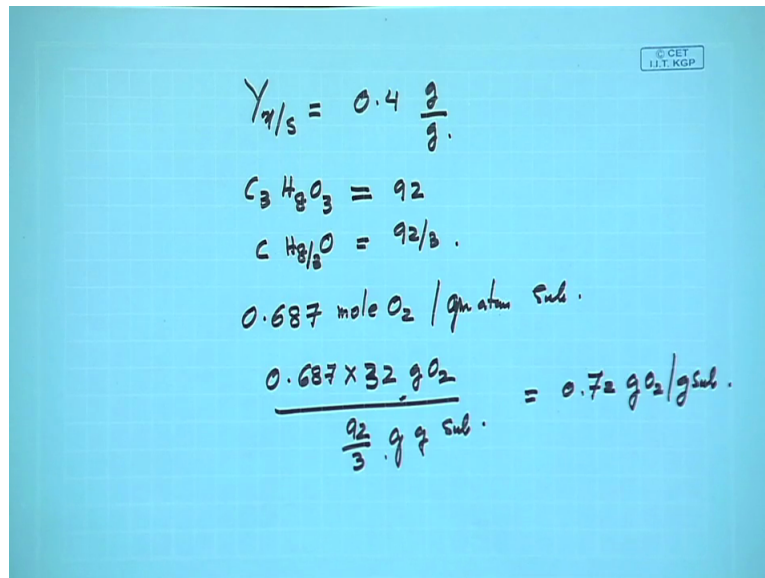 © CET
I.I.T. KGP
Yx/s = 0.4 g/g.
C3H8O3 = 92
C H8/3O = 92/3.
0.687 mole O2 / gm atom sub.
0.687 × 32 g O2
92/3 . g g sub. = 0.72 g O2/g sub.